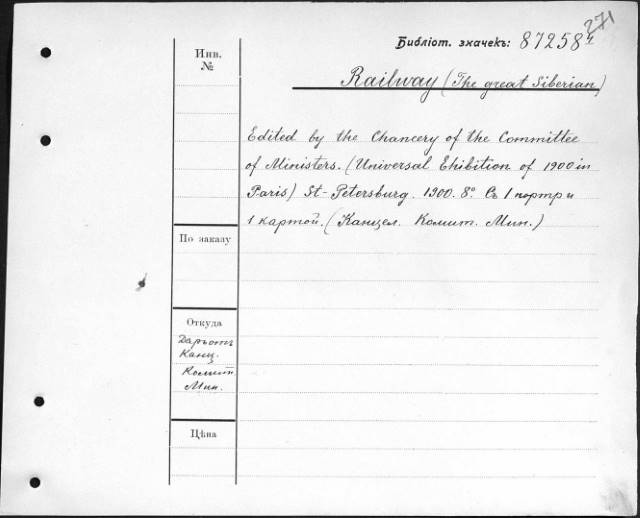 271
Библіот. значекъ: 87258
Инв.
№
Railway (The great Siberian)
Edited by the Chancery of the Committee
of Ministers. (Universal Ehibition of 1900 in
Paris) St-Petersburg. 1900. 8º. Съ 1 портр и
1 картой. (Канцел. Комит. Мин.)
По заказу
Откуда
Даръ отъ
Канц.
Комит.
Мин.
Цѣна